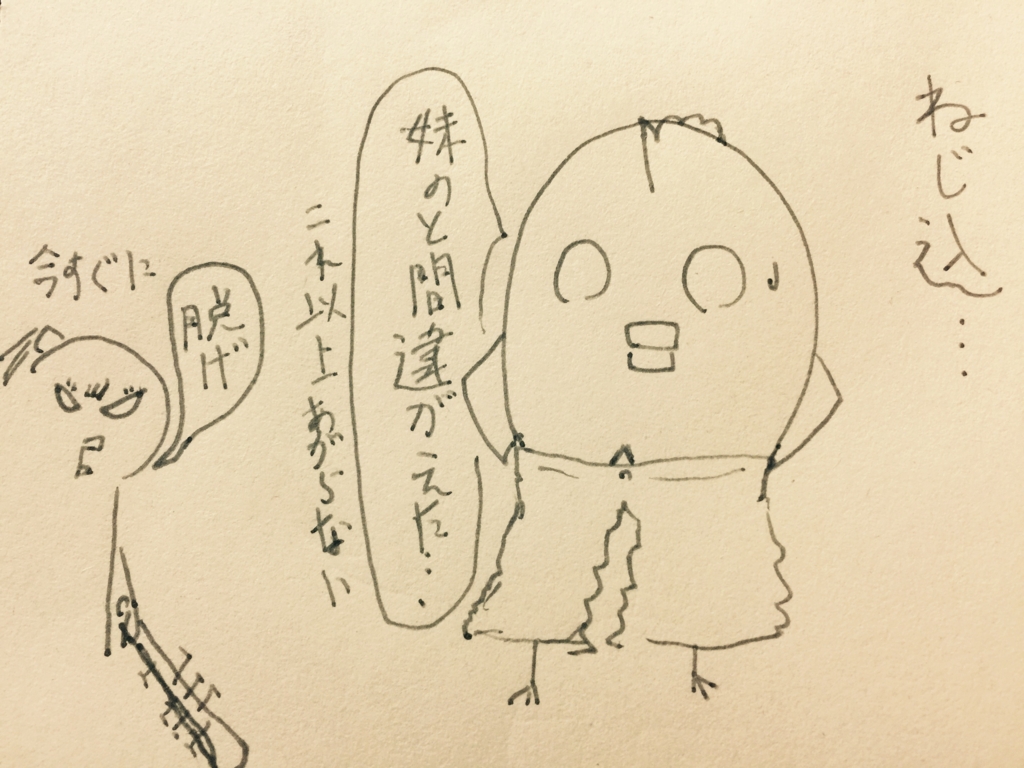 ねじ込…
妹のと間違がえた…
これ以上あがらない
脱げ
今すぐに